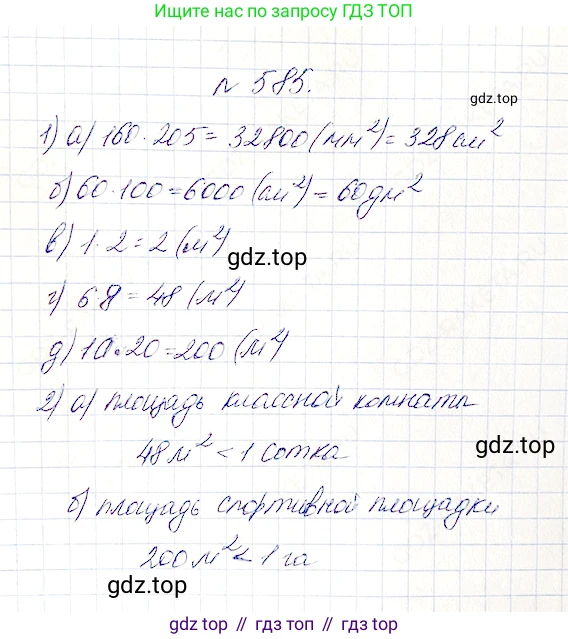 Ищите нас в поиске по запросу ГДЗ ТОП
№ 585.
gdz.top
1) а) 160 · 205 = 32800 (мм²) = 328 см²
б) 60 · 100 = 6000 (см²) = 60 дм²
в) 1 · 2 = 2 (м²)
gdz.top
г) 6 · 8 = 48 (м²)
д) 10 · 20 = 200 (м²)
2) а) площадь классной комнаты
48 м² < 1 сотка
gdz.top
б) площадь спортивной площадки
200 м² < 1 га
gdz.top
gdz top // гдз топ // gdz.top // гдз.топ